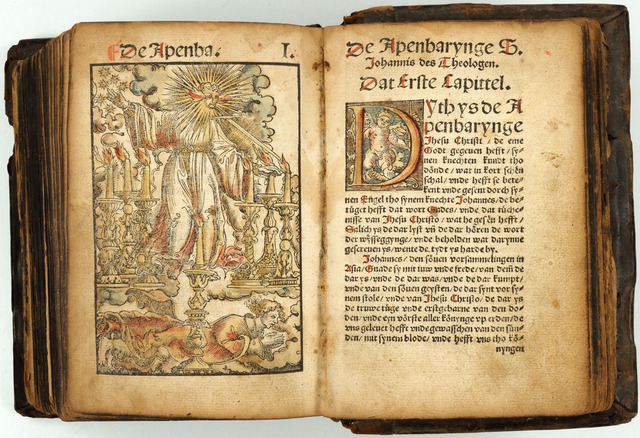 De Apenba. I.
De Apenbarynge S.
Johannis des Theologen.
Dat Erste Capittel.
Dyth ys de A
penbarynge
Jhesu Christi / de eme
Godt gegeuen hefft / sy-
nen knechten kundt tho
dönde / wat in kort schên
schal / vnde hefft se bete-
kent vnde gesent dorch sy-
nen Engel tho synem knechte Johannes / de be-
tüget hefft dat wort Gades / vnde dat tüche-
nisse van Jhesu Christo / wat he geseen hefft /
Salich ys de dar lyst vn de dar hören de wort
der wysseggynge / vnde beholden wat darynne
gescreuen ys / wente de tydt ys harde by.
Johannes / den söuen vorsammelingen in
Asia / Gnade sy mit juw vnde frede / van dem de
dar ys / vnde de dar was / vnde de dar kumpt /
vnde van den söuen geysten / de dar synt vor sy-
nem stole / vnde van Jhesu Christo / de dar ys
de truwe tüge vnde erstgebarne van den do-
den / vnde eyn vörste aller könynge vp erden / de
vns geleuet hefft vnde gewasschen van den sün-
den / mit synem blode / vnde hefft vns tho kö-
nyngen